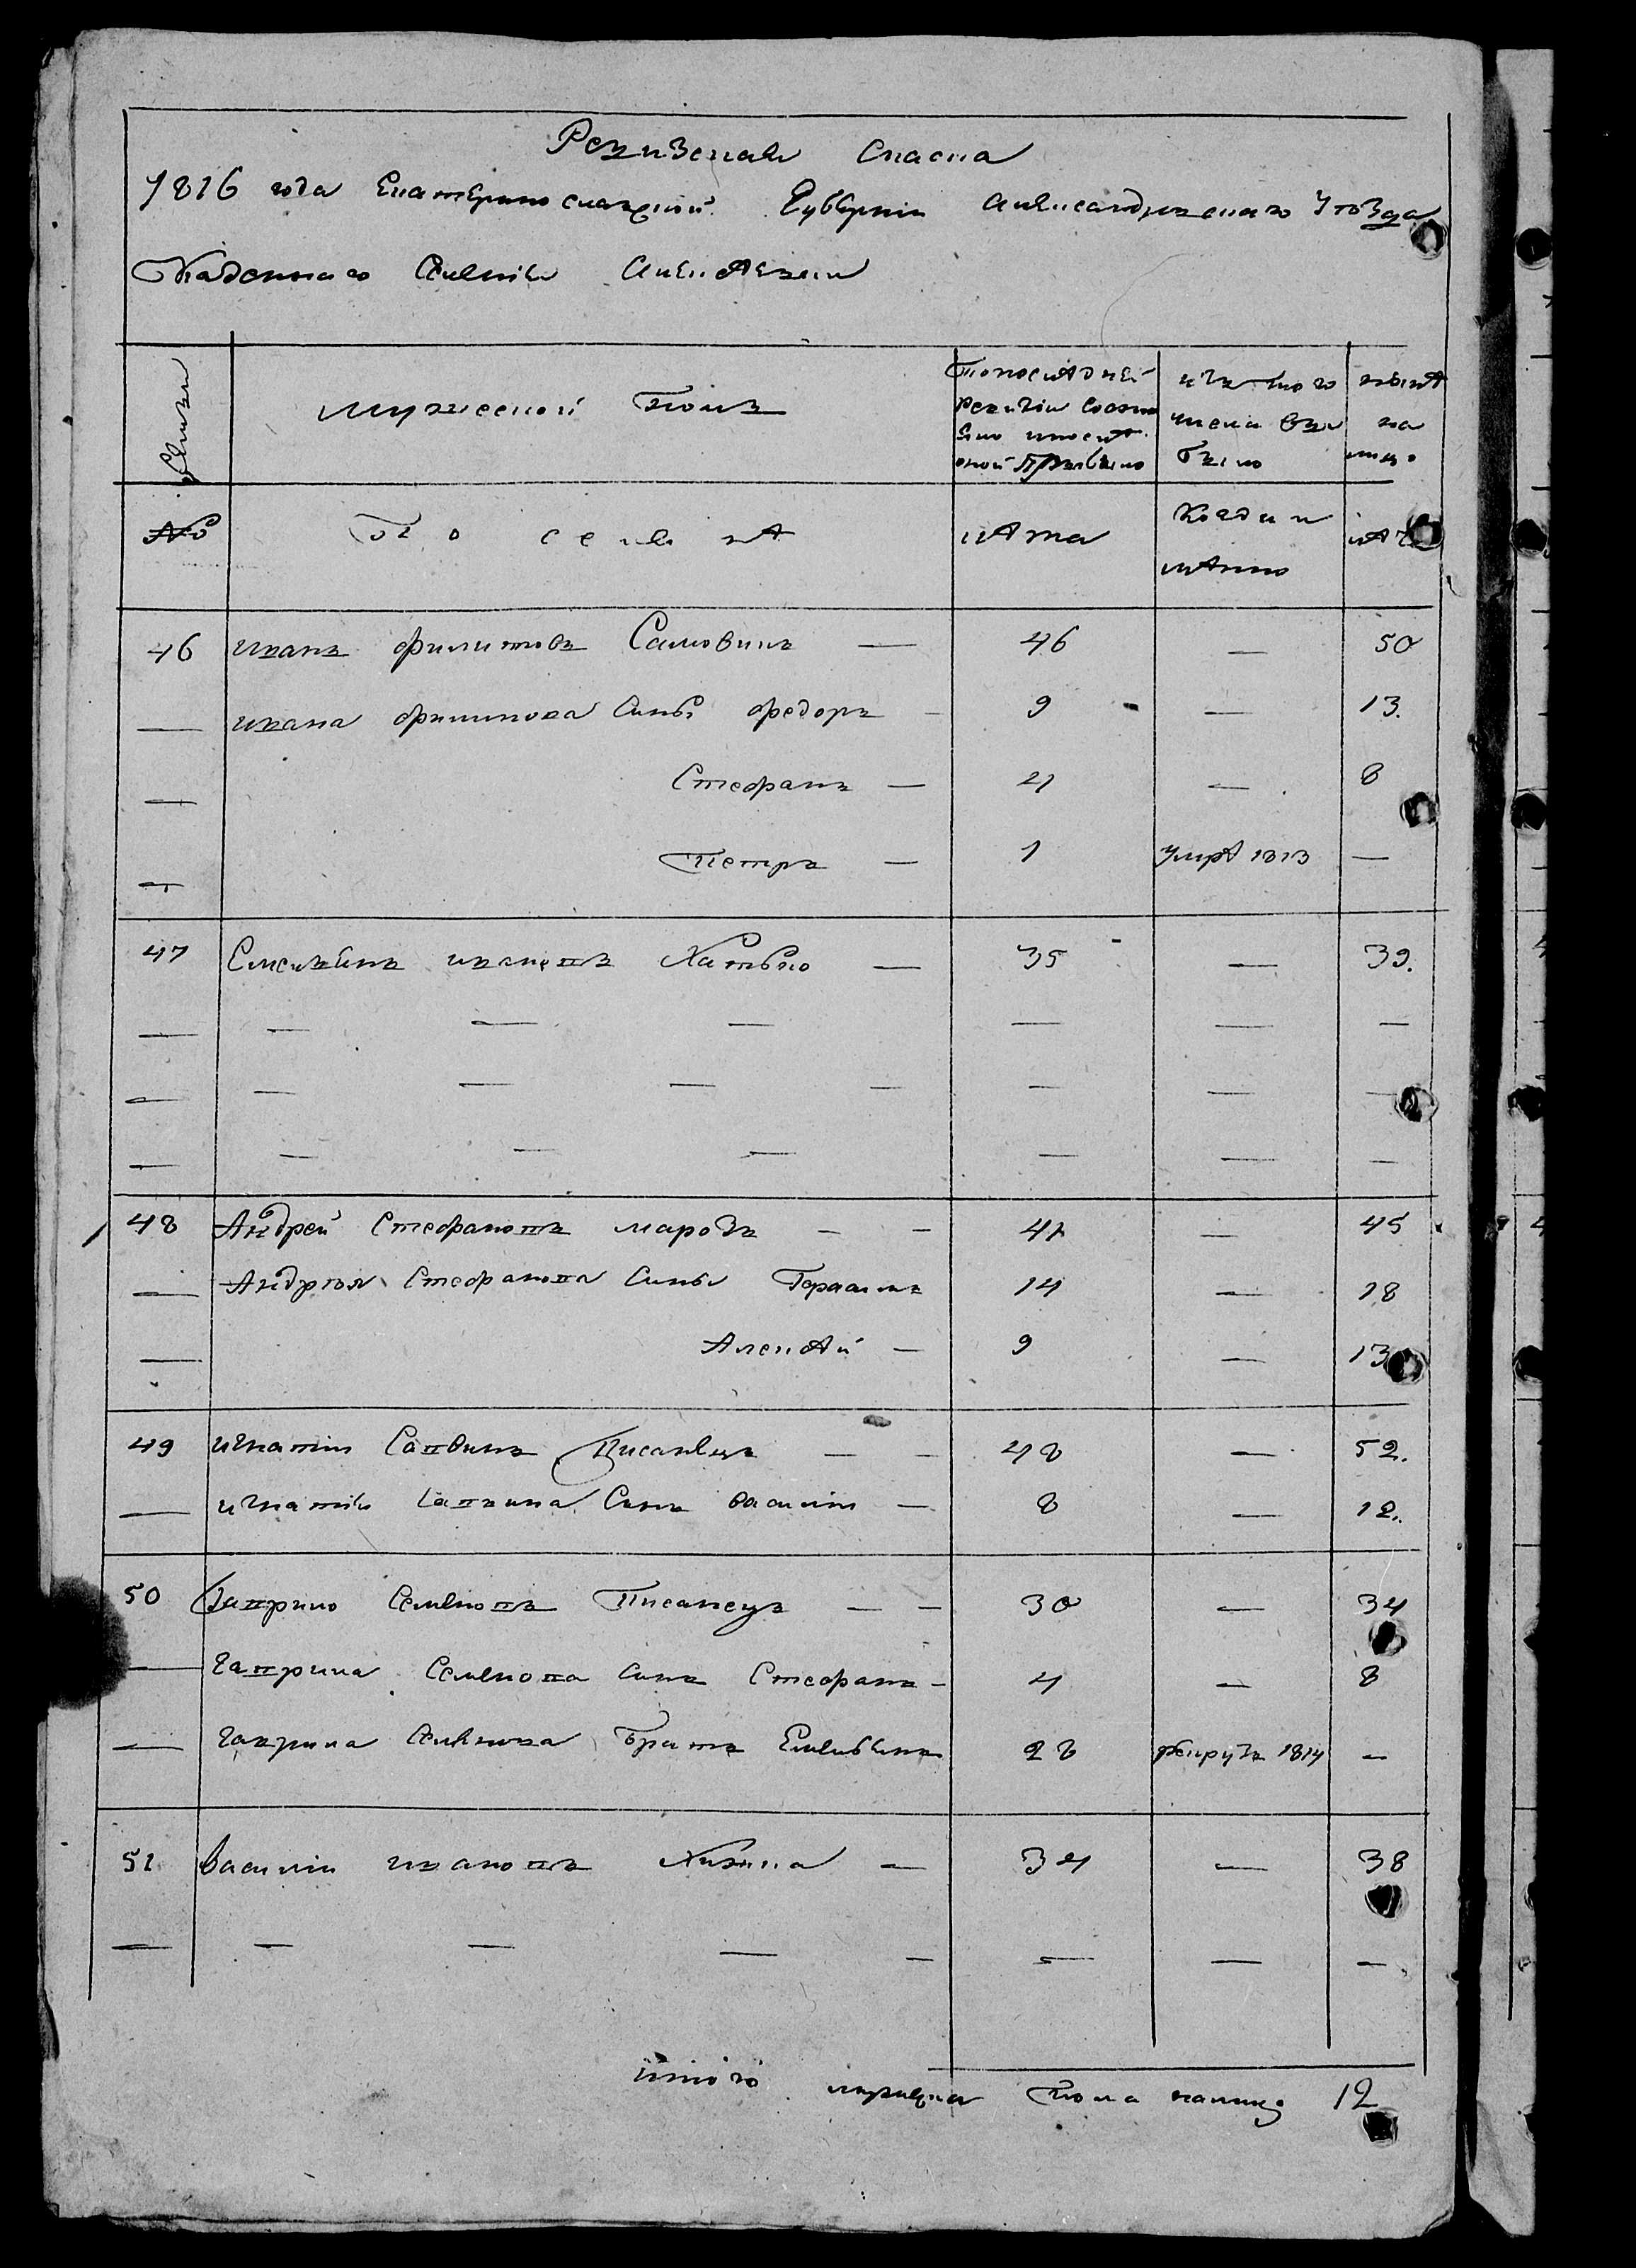 Ревизская сказка
1816 года Екатеринославской Губернии Александровскаго уѣзда
Казеннаго Селения
Семьи
мужеской полъ
По последней ревизіи состояло и после оной прибыло
изъ того числа выбыло
нынѣ на лицо
№
По семьѣ
лѣта
когда и
лѣта
46 иванъ филиповъ Самовикъ — 46 — 50
— ивана филипова сины федоръ — 9 — 13.
— Стефанъ — 4 — 8
— Петръ — 1 умре 1813 —
47 Емельянъ ивановъ — 35 — 39.
— — — — — — —
— — — — — — — —
— — — — — — —
48 Андрей Стефановъ марозъ — — 41 — 45
— Андрея Стефанова сины Герасимъ 14 — 18
— Алексѣй — 9 — 13
49 игнатіи Савинъ Писанецъ — — 48 — 52.
— игнатія савина синъ василіи — 8 — 12.
50 Гаврило Семеновъ Писанецъ — — 30 — 34
— гаврила Семенова синъ Стефанъ — 4 — 8
— гаврила Семенова братъ Емельянъ 28 рекрутъ 1814 —
51 василіи ивановъ — 34 — 38
— — — — — — — —
итого мужеска пола налицо 12